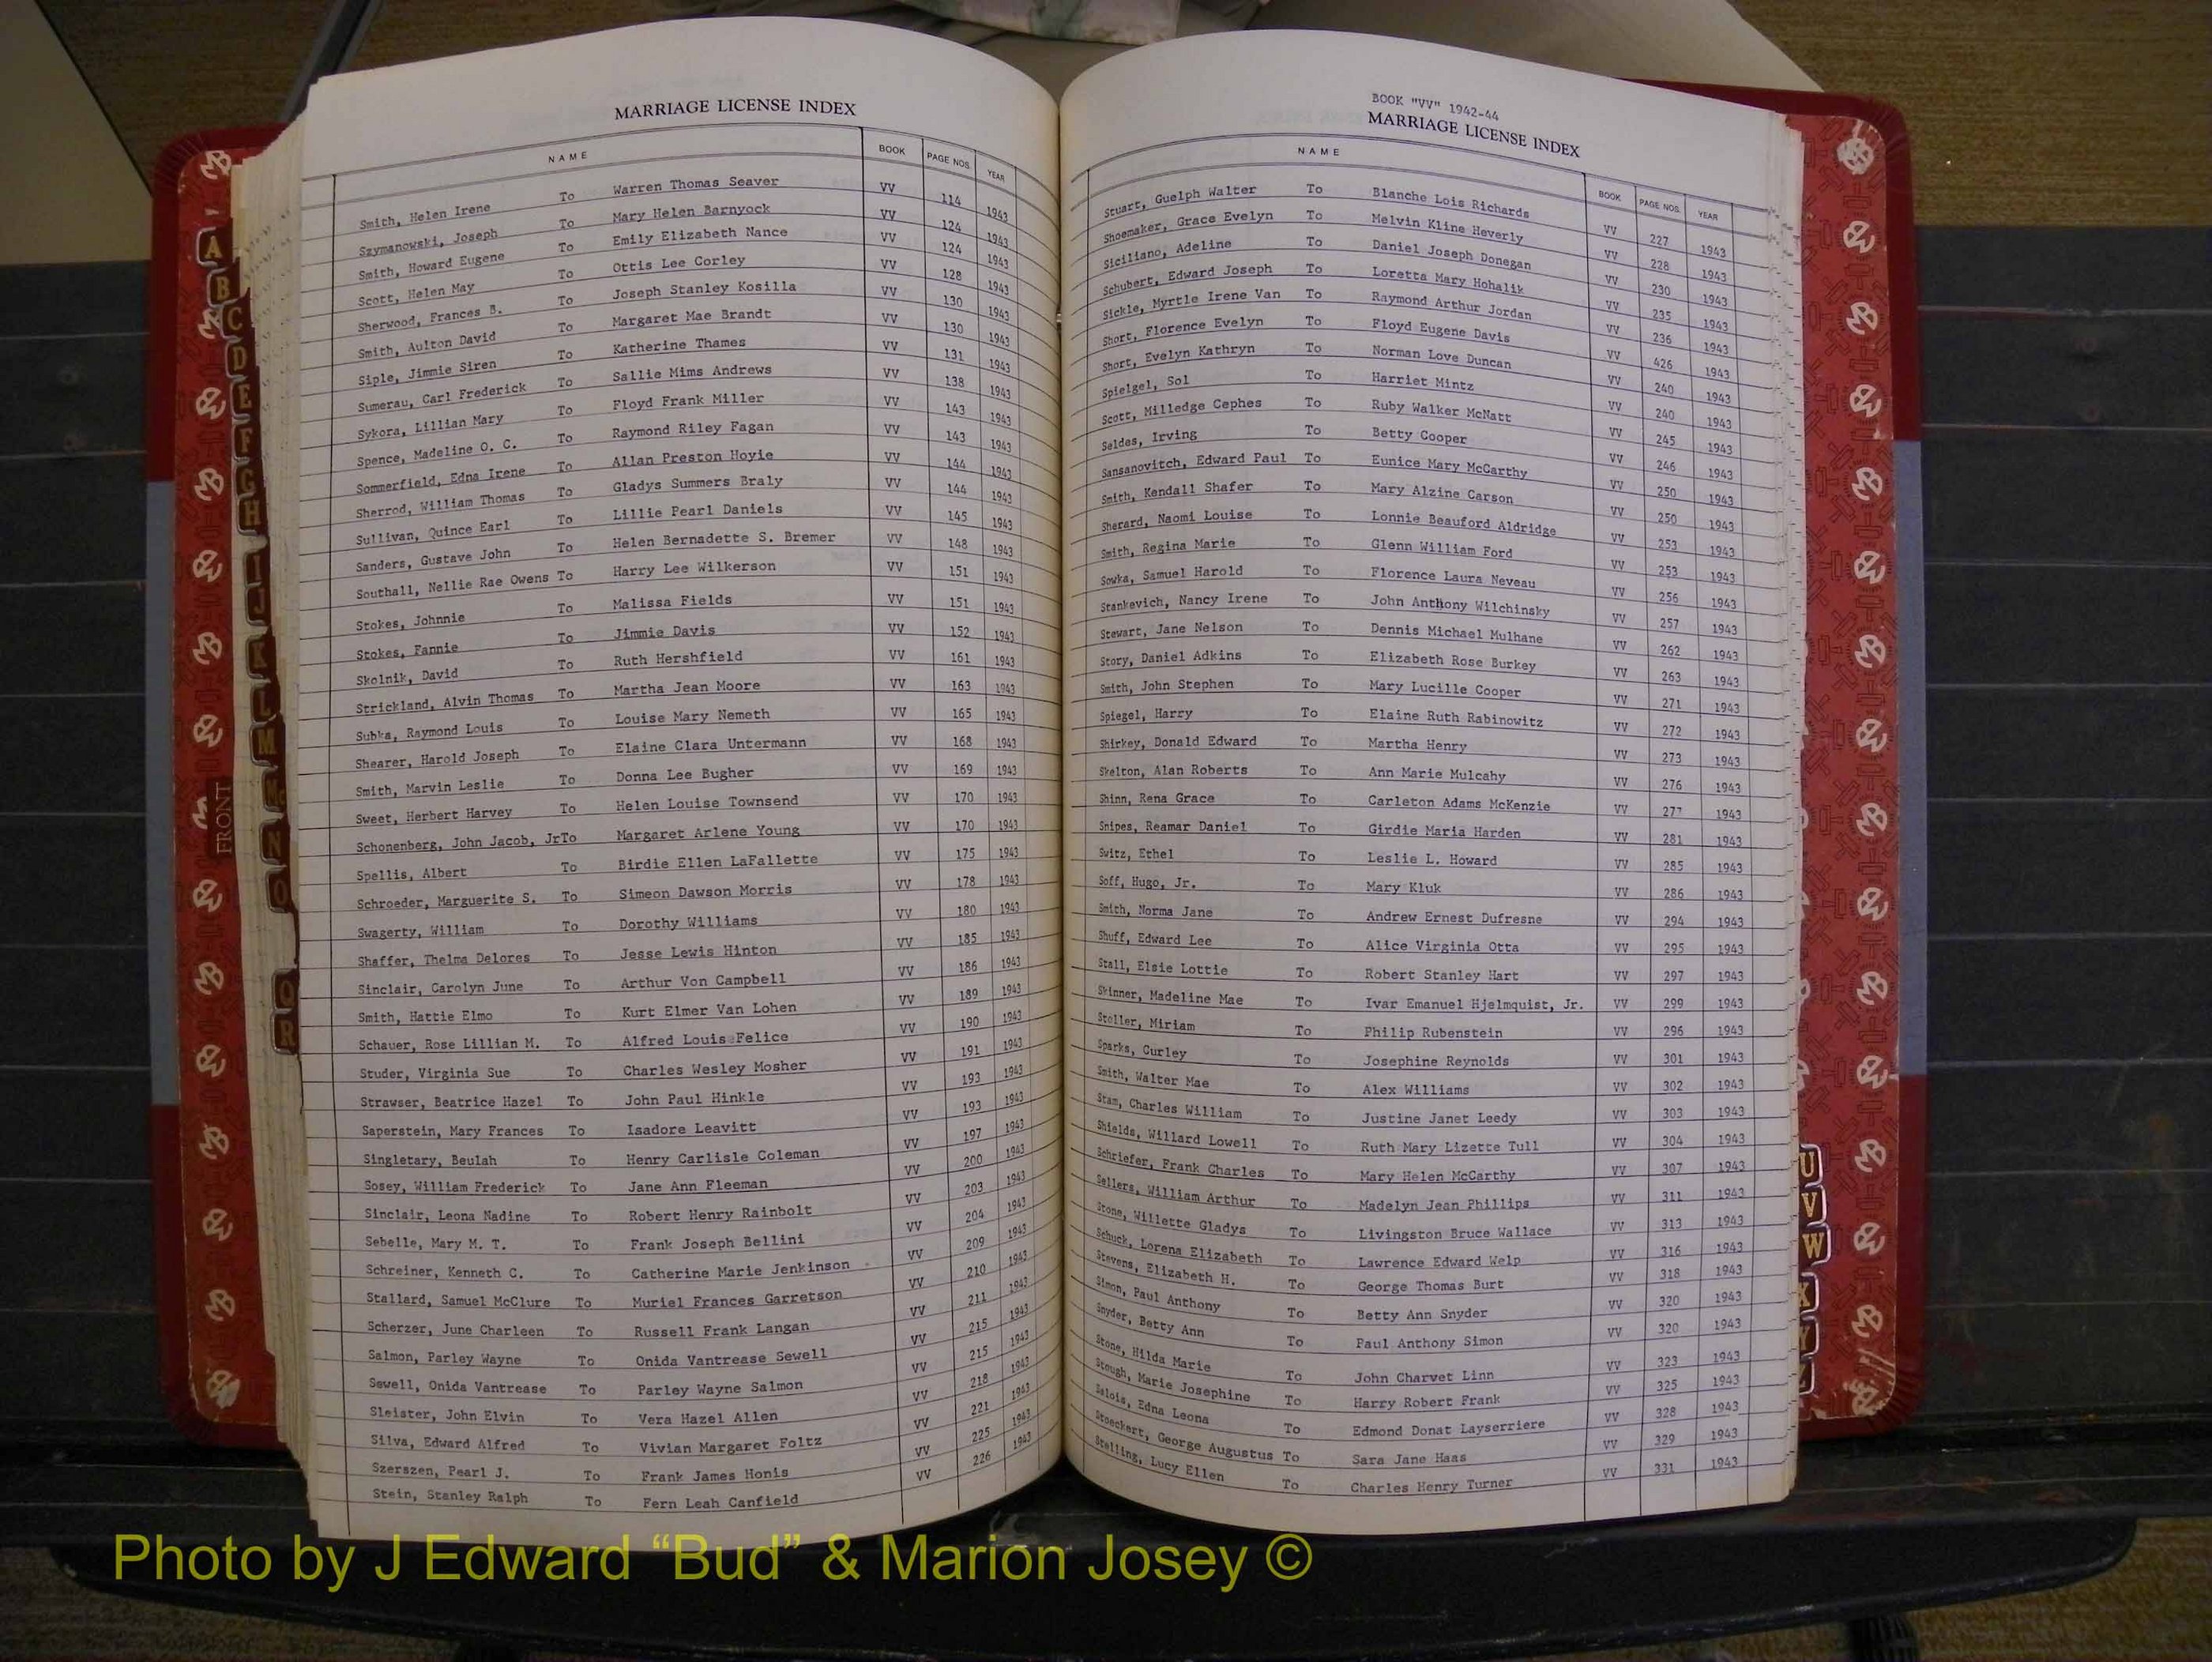 MARRIAGE LICENSE INDEX
NAME BOOK PAGE NOS. YEAR
Smith, Helen Irene To Warren Thomas Seaver VV 114 1943
Szymanowski, Joseph To Mary Helen Barnyock VV 124 1943
Smith, Howard Eugene To Emily Elizabeth Nance VV 124 1943
Scott, Helen May To Ottis Lee Corley VV 128 1943
Sherwood, Frances B. To Joseph Stanley Kosilla VV 130 1943
Smith, Aulton David To Margaret Mae Brandt VV 130 1943
Siple, Jimmie Siren To Katherine Thames VV 131 1943
Sumerau, Carl Frederick To Sallie Mims Andrews VV 138 1943
Sykora, Lillian Mary To Floyd Frank Miller VV 143 1943
Spence, Madeline O. C. To Raymond Riley Fagan VV 143 1943
Sommerfield, Edna Irene To Allan Preston Hoyie VV 144 1943
Sherrod, William Thomas To Gladys Summers Braly VV 144 1943
Sullivan, Quince Earl To Lillie Pearl Daniels VV 145 1943
Sanders, Gustave John To Helen Bernadette S. Bremer VV 148 1943
Southall, Nellie Rae Owens To Harry Lee Wilkerson VV 151 1943
Stokes, Johnnie To Malissa Fields VV 151 1943
Stokes, Fannie To Jimmie Davis VV 152 1943
Skolnik, David To Ruth Hershfield VV 161 1943
Strickland, Alvin Thomas To Martha Jean Moore VV 163 1943
Subka, Raymond Louis To Louise Mary Nemeth VV 165 1943
Shearer, Harold Joseph To Elaine Clara Untermann VV 168 1943
Smith, Marvin Leslie To Donna Lee Bugher VV 169 1943
Sweet, Herbert Harvey To Helen Louise Townsend VV 170 1943
Schonenberg, John Jacob, JrTo Margaret Arlene Young VV 170 1943
Spellis, Albert To Birdie Ellen LaFallette VV 175 1943
Schroeder, Marguerite S. To Simeon Dawson Morris VV 178 1943
Swagerty, William To Dorothy Williams VV 180 1943
Shaffer, Thelma Delores To Jesse Lewis Hinton VV 185 1943
Sinclair, Carolyn June To Arthur Von Campbell VV 186 1943
Smith, Hattie Elmo To Kurt Elmer Van Lohen VV 189 1943
Schauer, Rose Lillian M. To Alfred Louis Felice VV 190 1943
Studer, Virginia Sue To Charles Wesley Mosher VV 191 1943
Strawser, Beatrice Hazel To John Paul Hinkle VV 193 1943
Saperstein, Mary Frances To Isadore Leavitt VV 193 1943
Singletary, Beulah To Henry Carlisle Coleman VV 197 1943
Sosey, William Frederick To Jane Ann Fleeman VV 200 1943
Sinclair, Leona Nadine To Robert Henry Rainbolt VV 203 1943
Sebelle, Mary M. T. To Frank Joseph Bellini VV 204 1943
Schreiner, Kenneth C. To Catherine Marie Jenkinson VV 209 1943
Stallard, Samuel McClure To Muriel Frances Garretson VV 210 1943
Scherzer, June Charleen To Russell Frank Langan VV 211 1943
Salmon, Parley Wayne To Onida Vantrease Sewell VV 215 1943
Sewell, Onida Vantrease To Parley Wayne Salmon VV 215 1943
Sleister, John Elvin To Vera Hazel Allen VV 218 1943
Silva, Edward Alfred To Vivian Margaret Foltz VV 221 1943
Szerszen, Pearl J. To Frank James Honis VV 225 1943
Stein, Stanley Ralph To Fern Leah Canfield VV 226 1943
BOOK "VV" 1942-44
MARRIAGE LICENSE INDEX
NAME BOOK PAGE NOS. YEAR
Stuart, Guelph Walter To Blanche Lois Richards VV 227 1943
Shoemaker, Grace Evelyn To Melvin Kline Heverly VV 228 1943
Siciliano, Adeline To Daniel Joseph Donegan VV 230 1943
Schubert, Edward Joseph To Loretta Mary Hohalik VV 235 1943
Sickle, Myrtle Irene Van To Raymond Arthur Jordan VV 236 1943
Short, Florence Evelyn To Floyd Eugene Davis VV 426 1943
Short, Evelyn Kathryn To Norman Love Duncan VV 240 1943
Spielgel, Sol To Harriet Mintz VV 240 1943
Scott, Milledge Cephes To Ruby Walker McNatt VV 245 1943
Seldes, Irving To Betty Cooper VV 246 1943
Sansanovitch, Edward Paul To Eunice Mary McCarthy VV 250 1943
Smith, Kendall Shafer To Mary Alzine Carson VV 250 1943
Sherard, Naomi Louise To Lonnie Beauford Aldridge VV 253 1943
Smith, Regina Marie To Glenn William Ford VV 253 1943
Sowka, Samuel Harold To Florence Laura Neveau VV 256 1943
Stankevich, Nancy Irene To John Anthony Wilchinsky VV 257 1943
Stewart, Jane Nelson To Dennis Michael Mulhane VV 262 1943
Story, Daniel Adkins To Elizabeth Rose Burkey VV 263 1943
Smith, John Stephen To Mary Lucille Cooper VV 271 1943
Spiegel, Harry To Elaine Ruth Rabinowitz VV 272 1943
Shirkey, Donald Edward To Martha Henry VV 273 1943
Skelton, Alan Roberts To Ann Marie Mulcahy VV 276 1943
Shinn, Rena Grace To Carleton Adams McKenzie VV 277 1943
Snipes, Reamar Daniel To Girdie Maria Harden VV 281 1943
Switz, Ethel To Leslie L. Howard VV 285 1943
Soff, Hugo, Jr. To Mary Kluk VV 286 1943
Smith, Norma Jane To Andrew Ernest Dufresne VV 294 1943
Shuff, Edward Lee To Alice Virginia Otta VV 295 1943
Stall, Elsie Lottie To Robert Stanley Hart VV 297 1943
Skinner, Madeline Mae To Ivar Emanuel Hjelmquist, Jr. VV 299 1943
Stoller, Miriam To Philip Rubenstein VV 296 1943
Sparks, Curley To Josephine Reynolds VV 301 1943
Smith, Walter Mae To Alex Williams VV 302 1943
Stam, Charles William To Justine Janet Leedy VV 303 1943
Shields, Willard Lowell To Ruth Mary Lizette Tull VV 304 1943
Schriefer, Frank Charles To Mary Helen McCarthy VV 307 1943
Sellers, William Arthur To Madelyn Jean Phillips VV 311 1943
Stone, Willette Gladys To Livingston Bruce Wallace VV 313 1943
Schuck, Lorena Elizabeth To Lawrence Edward Welp VV 316 1943
Stevens, Elizabeth H. To George Thomas Burt VV 318 1943
Simon, Paul Anthony To Betty Ann Snyder VV 320 1943
Snyder, Betty Ann To Paul Anthony Simon VV 320 1943
Stone, Hilda Marie To John Charvet Linn VV 323 1943
Stough, Marie Josephine To Harry Robert Frank VV 325 1943
Salois, Edna Leona To Edmond Donat Layserriere VV 328 1943
Stoeckert, George Augustus To Sara Jane Haas VV 329 1943
Stelling, Lucy Ellen To Charles Henry Turner VV 331 1943
A
B
C
D
E
F
G
H
I
J
K
L
M
Mc
N
O
Q
R
FRONT
U
V
W
X
Y
Z
Photo by J Edward “Bud” & Marion Josey ©